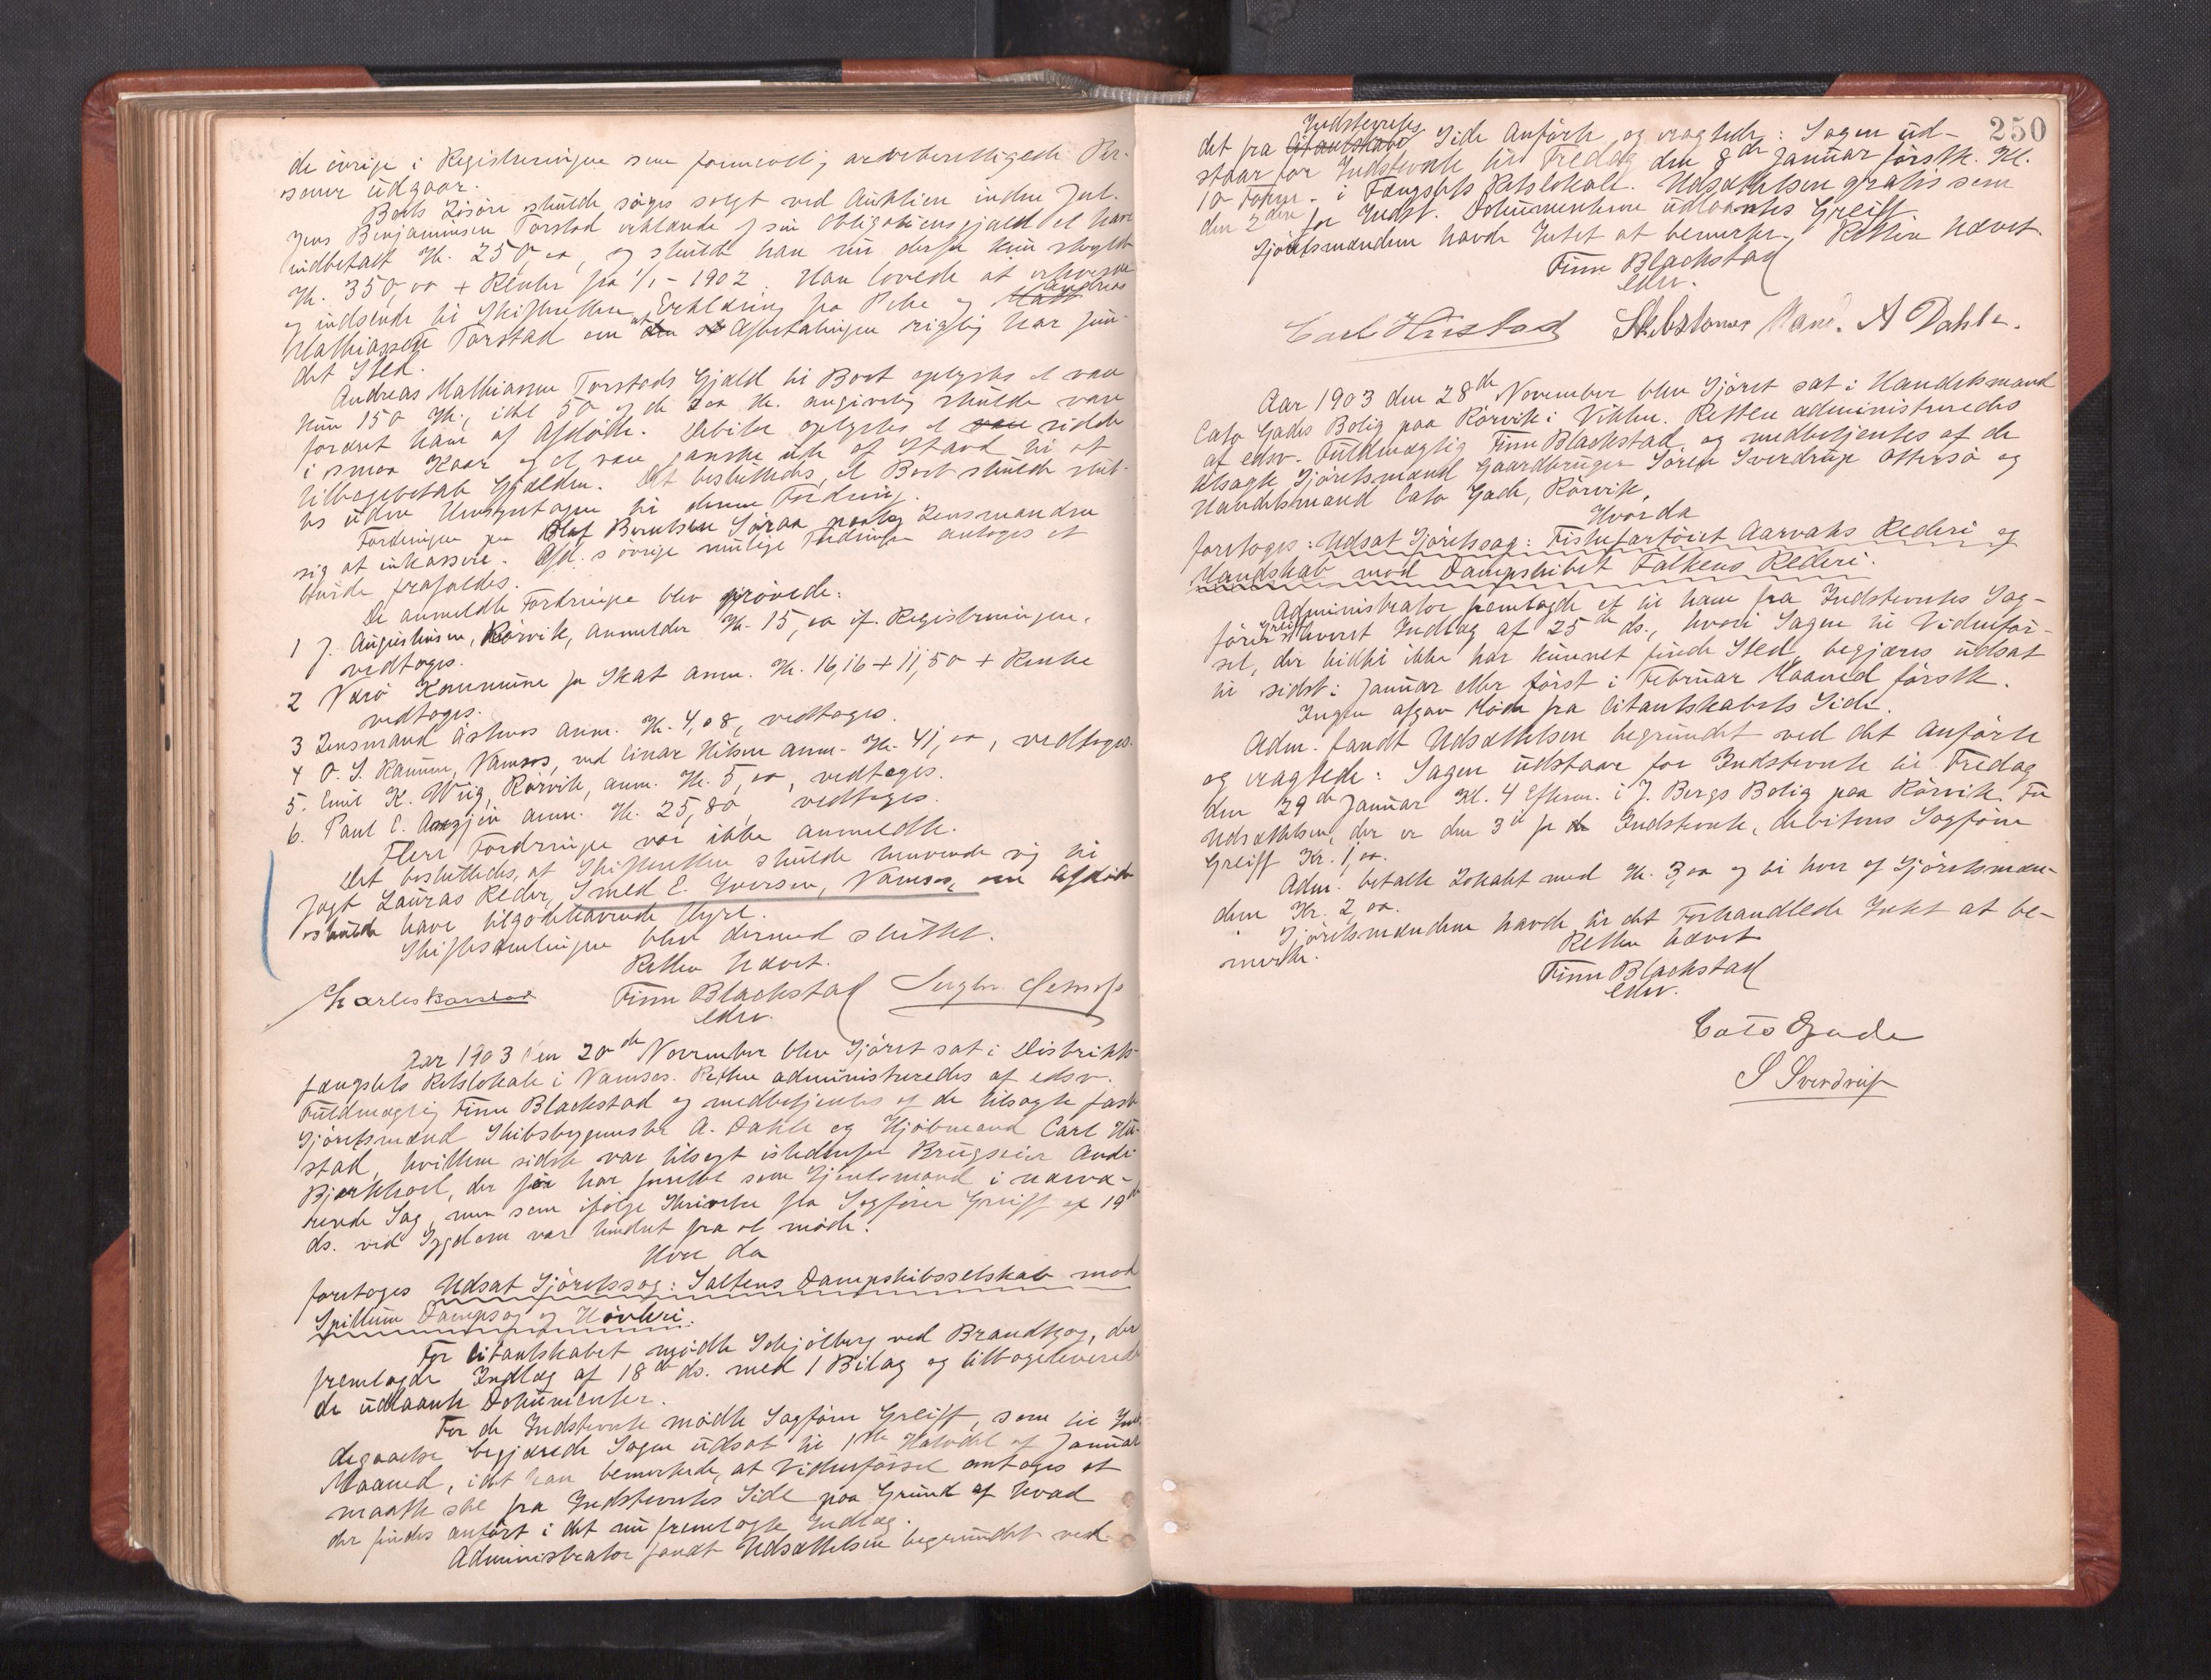 de övrige i Registreringen som formentlig arveberettigede Per-
soner udgaar.
Boets Lösöre skulde söges solgt ved Auktion inden Jul.
Jens Benjaminsen Torstad erklærede på sin Obligationsgjæld at have
indbetalt Kr. 250,00, og skulde han nu derfor kun skylde
Kr. 350,00 + Renter fra 1/1 - 1902. Han lovede at erhverve
og indsende til Skifteretten Erklæring fra Peter og Andreas
Mathiassen Torstad om at Afbetalingen rigtig har fun-
det Sted.
Andreas Mathiassen Torstads Gjæld til Boet oplystes at være
kun 150 Kr., idet 50 af de 200 Kr. angivelig skulde være
foræret ham af Afdöde. Debitor oplystes at sidde
i smaa Kaar og at være ganske ude af Stand til at
tilbagebetale Gjælden. Det besluttedes, at Boet skulde slut-
tes uden Hensyntagen til denne Fordring.
Fordringen paa Olaf Berntsen Söraa paatog Lensmanden
sig at inkassere. Afd.s övrige mulige Fordringer antoges at
burde frafaldes.
De anmeldte Fordringer blev prövede:
1 J. Augustinsen, Rörvik, anmelder Kr. 15,00 if. Registreringen.
vedtoges.
2 Værö Kommune for Skat anm. Kr. 16,16 + 11,50 + Renter
vedtoges.
3 Lensmand Åsnes anm. Kr. 4,08, vedtoges.
4 O. S. Ramm, Namsos, ved Einar Nilsen anm. Kr. 41,00, vedtoges.
5. Emil K. Wiig, Rörvik, anm. Kr. 5,00, vedtoges.
6. Paul E. anm. Kr. 25,80, vedtoges.
Flere Fordringer var ikke anmeldte.
Det besluttedes, at Skifteretten skulde henvende sig til
Jagt Lauras Reder, Smed E. Iversen, Namsos, om Afdöde
skulde have tilgodehavende Hyre.
Skiftesamlingen blev dermed sluttet.
Retten hævet.
Finn Blackstad
edsv.
Aar 1903 den 20de November blev Sjöret sat i Distrikts-
fængslets Retslokale i Namsos. Retten administreredes af edsv.
Fuldmægtig Finn Blackstad og medbetjentes af de tilsagte faste
Sjöretsmænd Skibsbygmester A. Dahle og Kjöbmand Carl Hu-
stad, hvilken sidste var tilsagt istedenfor Brugseier Andr.
Bjørkhoel, der för har fungeret som Sjöretsmand i nærvæ-
rende Sag, men som ifölge Skrivelse fra Sagförer Greiff af 19de
ds. ved Sygdom var hindret fra at möde.
Hvor da
foretoges Udsat Sjöretssag: Saltens Dampskibsselskab mod
Spillum Dampsag og Hövleri.
For Citantskabet mödte Schjölberg ved Brandtzæg, der
fremlagde Indlæg af 18de ds. med 1 Bilag og tilbageleverede
de udlaante Dokumenter.
For de Indstevnte mödte Sagförer Greiff, som til Imö-
degaaelse begjærede Sagen udsat til 1ste Halvdel af Januar
Maaned, idet han bemerkede, at Vidneförsel antoges at
maatte ske fra Indstevntes Side paa Grund af hvad
der findes anfört i det nu fremlagte Indlæg.
Administrator fandt Udsættelsen begrundet ved
250
Indstevntes
det fra Citantskabets Side Anförte og eragtede: Sagen ud-
staar for Indstevnte til Fredag den 8de Januar förstk. Kl.
10 Form. i Fængslets Retslokale. Udsættelsen gratis som
den 2den for Indst. Dokumenterne udlaantes Greiff.
Sjöretsmændene havde Intet at bemerke. Retten hævet.
Finn Blackstad
edsv.
Carl Hustad A Dahle.
Aar 1903 den 28de November blev Sjöret sat i Handelsmand
Cato Gades Bolig paa Rörvik i Vikten. Retten administreredes
af edsv. Fuldmægtig Finn Blackstad og medbetjentes af de
tilsagte Sjöretsmænd Gaardbruger Sören Sverdrup Ottersö og
Handelsmand Cato Gade, Rörvik.
Hvor da
foretoges: Udsat Sjöretssag: Fiskefartöiet Aarvaks Rederi og
Mandskab mod Dampskibet Falkens Rederi.
Administrator fremlagde et til ham fra Indstevntes Sag-
förer Greiff skrevet Indlæg af 25de ds., hvori Sagen til Vidneför-
sel, der hidtil ikke har kunnet finde Sted, begjæres udsat
til sidst i Januar eller först i Februar Maaned förstk.
Ingen afgav Möde fra Citantskabets Side.
Adm. fandt Udsættelsen begrundet ved det Anförte
og eragtede: Sagen udstaar for Indstevnte til Fredag
den 29de Januar Kl. 4 Efterm. i J. Bergs Bolig paa Rörvik. For
Udsættelsen, der er den 3die for Indstevnte, debiteres Sagförer
Greiff Kr. 1,00.
Adm. betalte Lokalet med Kr. 3,00 og til hver af Sjöretsmæn-
dene Kr. 2,00.
Sjöretsmændene havde til det Forhandlede Intet at be-
merke.
Retten hævet
Finn Blackstad
edsv.
Cato Gade
S Sverdrup